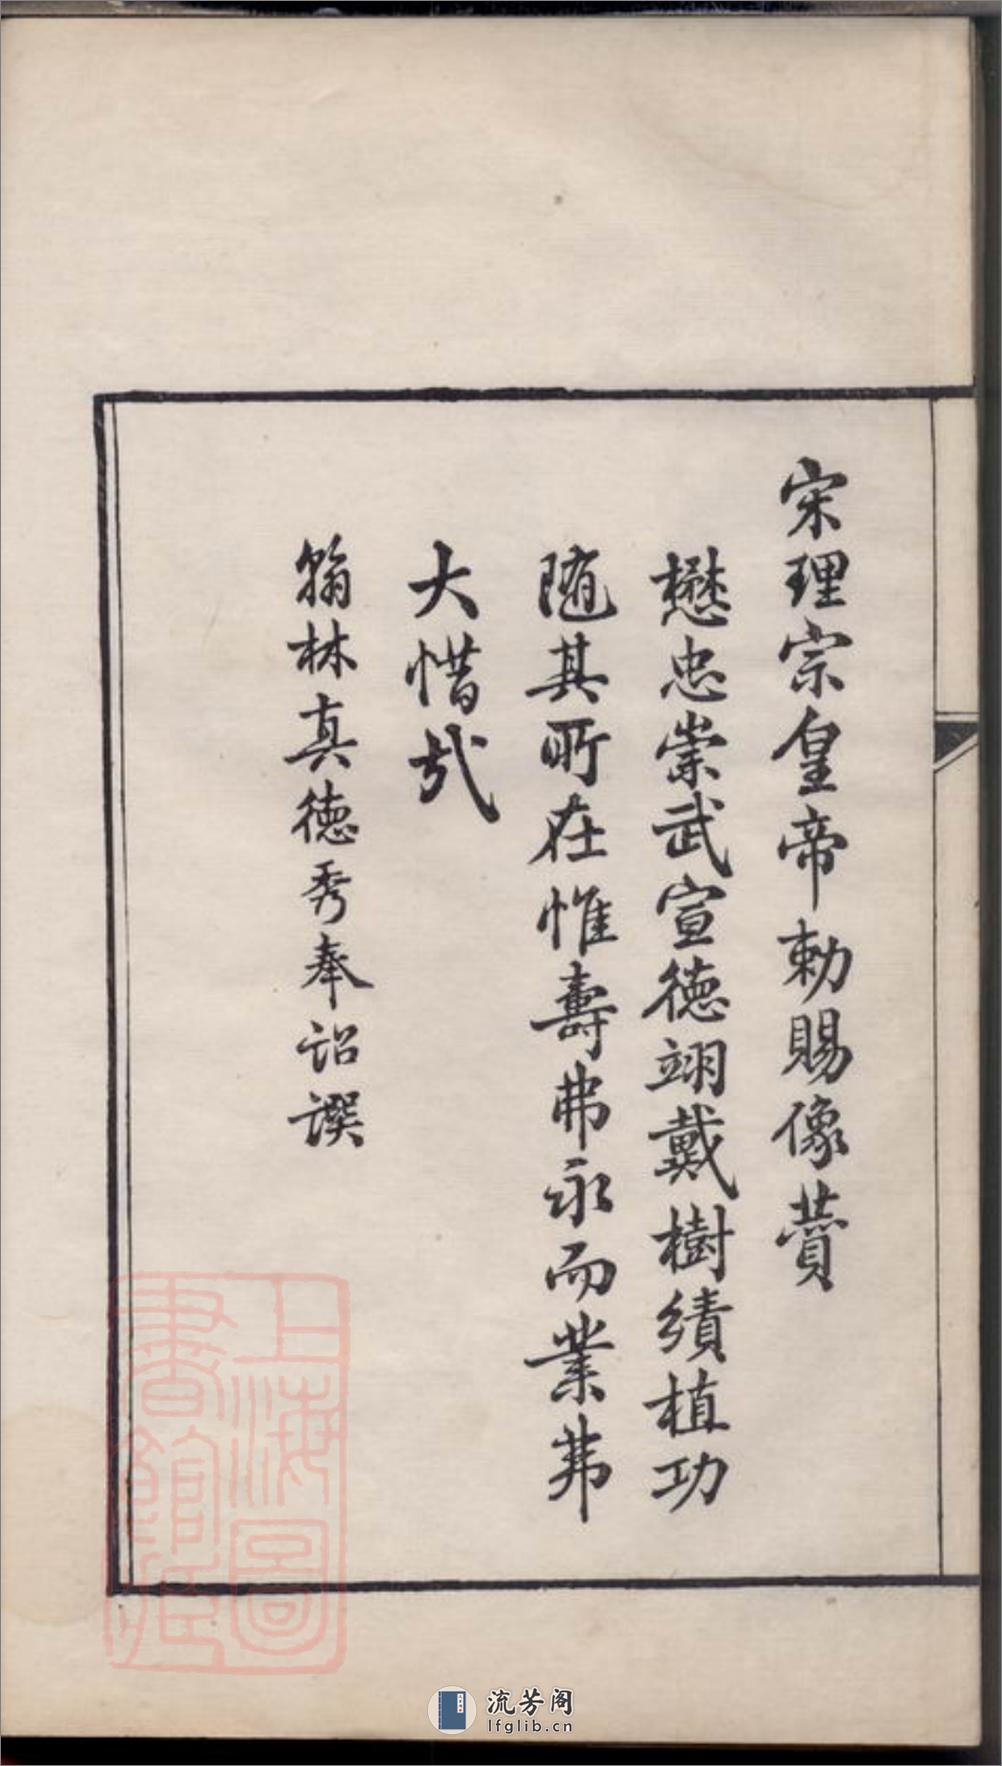 宋理宗皇帝勅賜像賛
懋忠崇武宣德翊戴樹績植功
随其所在惟壽弗永而業弗
大惜哉
翰林真德秀奉詔譔
上海圖
書館藏
流芳阁
lfglib.cn